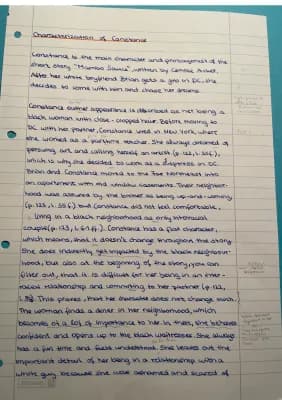 Characterization of Constance
Constance is the main character and protagonist of the
short story "Mambo Sauce", written by Camille Acker.
After her white boyfriend Brian gets a job in DC, she
decides to come with him and chase her dreams.
Constance outer appearance is described as her being a
black woman with close-cropped hair. Before moving to
DC with her partner, Constance lived in New York, where
she worked as a portfolio teacher. She always dreamed of
persuing art, and calling herself an artist (p. 122, l. 35f.),
which is why she decided to work as a in DC.
Brian and Constance moved to the Northeast into
an apartment with red window casements. Their neighbor-
hood was assured by the to be up-and-coming
(p. 123, l. 55f.) but Constance did not feel comfortable,
living in a black neighborhood as only interracial
couple (p. 123, l. 61 ff.). Constance has a flat character,
which means, that it doesn't change throughout the story.
She does indirectly get impacted by the black neighbour-
hood, but also at the beginning of the story, you can
filter out, that it is difficult for her being in an inter-
racial relationship and committing to her partner (p. 122,
This proves, that her character does not change much.
The woman finds a diner in her neighborhood, which
becomes of a lot of importance to her. In there, she behaves
confident and opens up to the black waitresses. She always
has a fun time and feels understood. She leaves out the
important detail of her being in a relationship with a
white guy, because she was ashamed and scared of